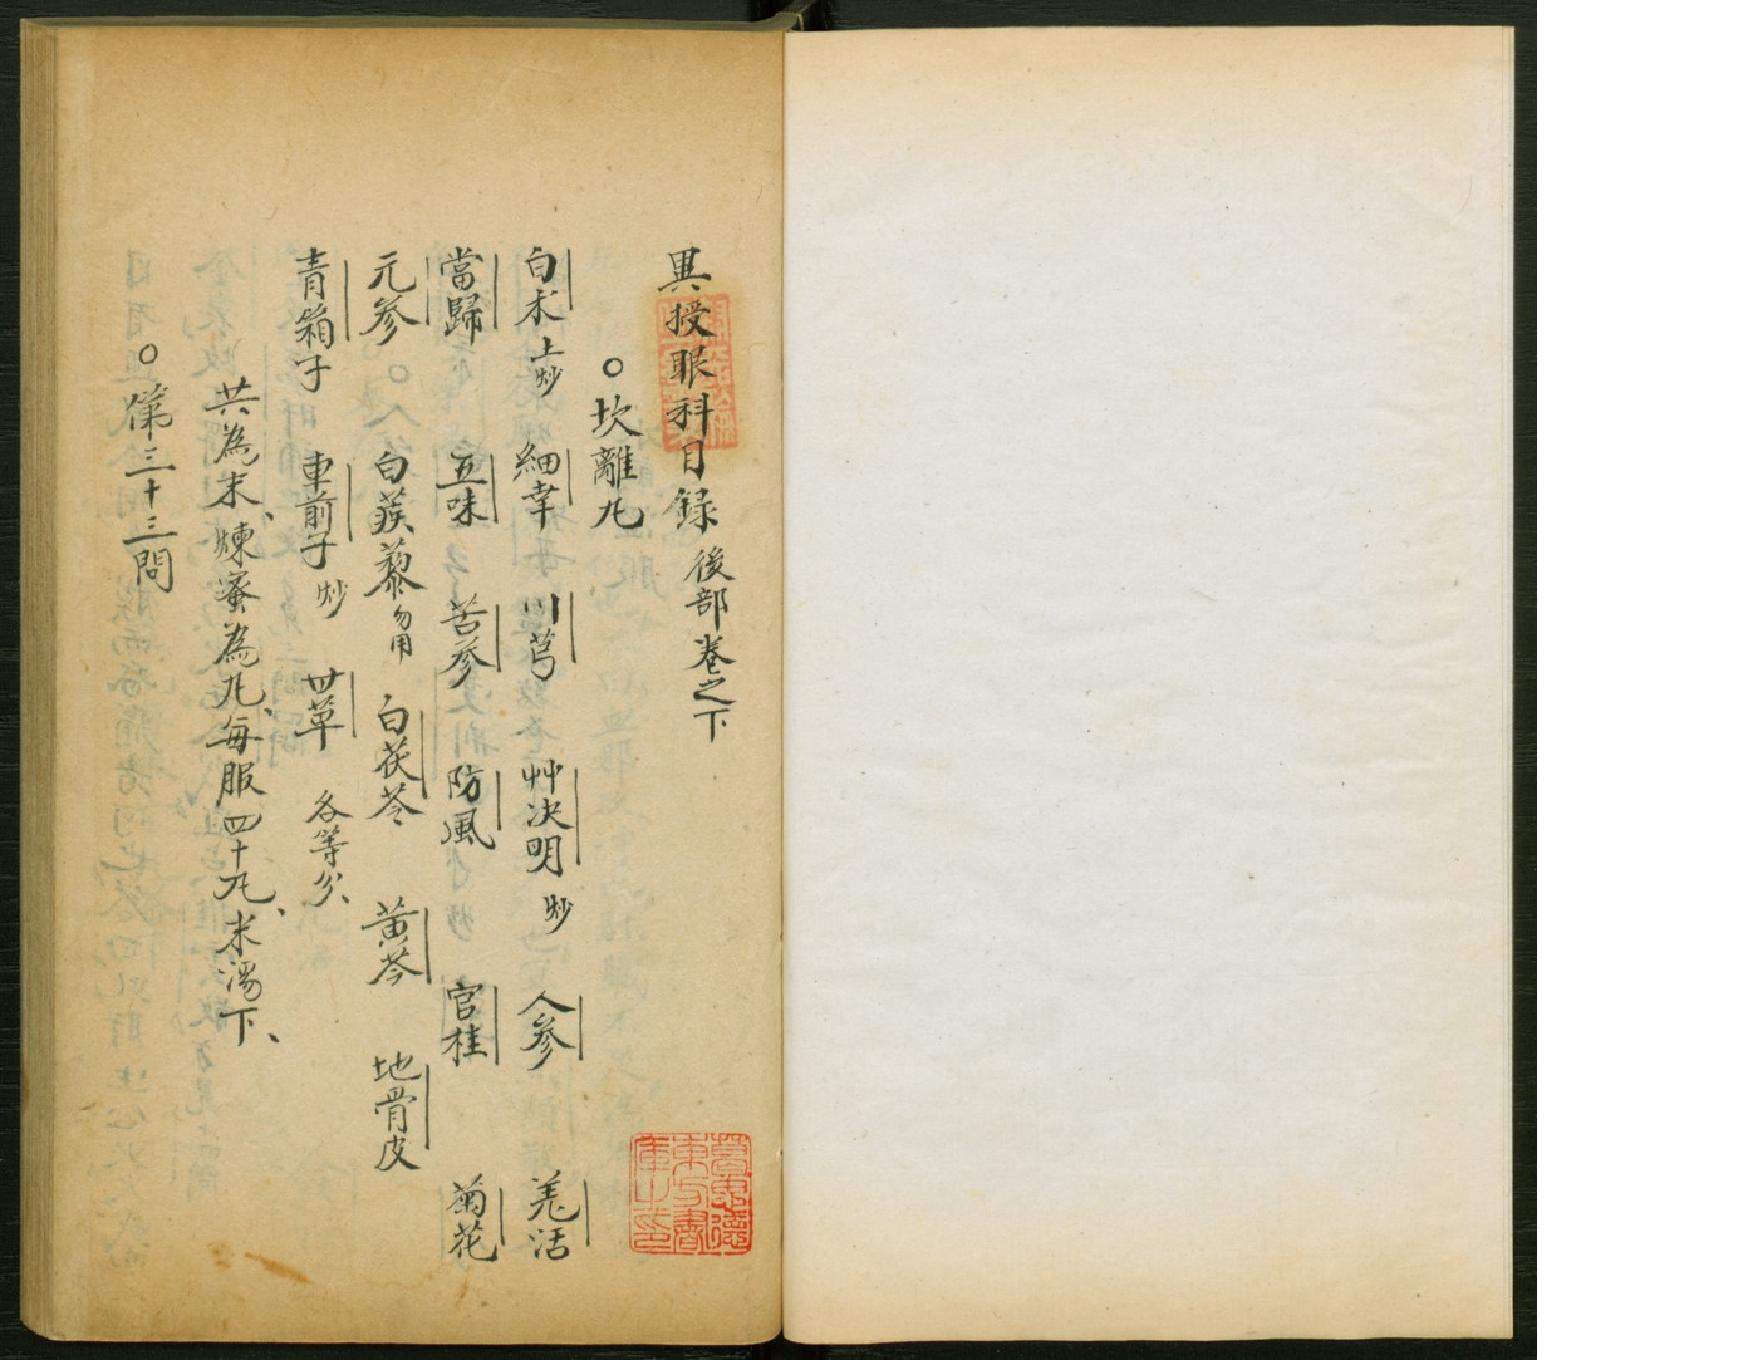 異授眼科目録後部卷之下
○坎離丸
白朮土炒 細辛 川芎 艸决明炒 人參 羌活
當歸 五味 苦參 防風 官桂 菊花
元參 白蒺藜 白茯苓 黄芩 地骨皮
青箱子 車前子炒 甘草 各等分、
共為末、煉蜜為丸、每服四十丸、米湯下、
○第三十三問